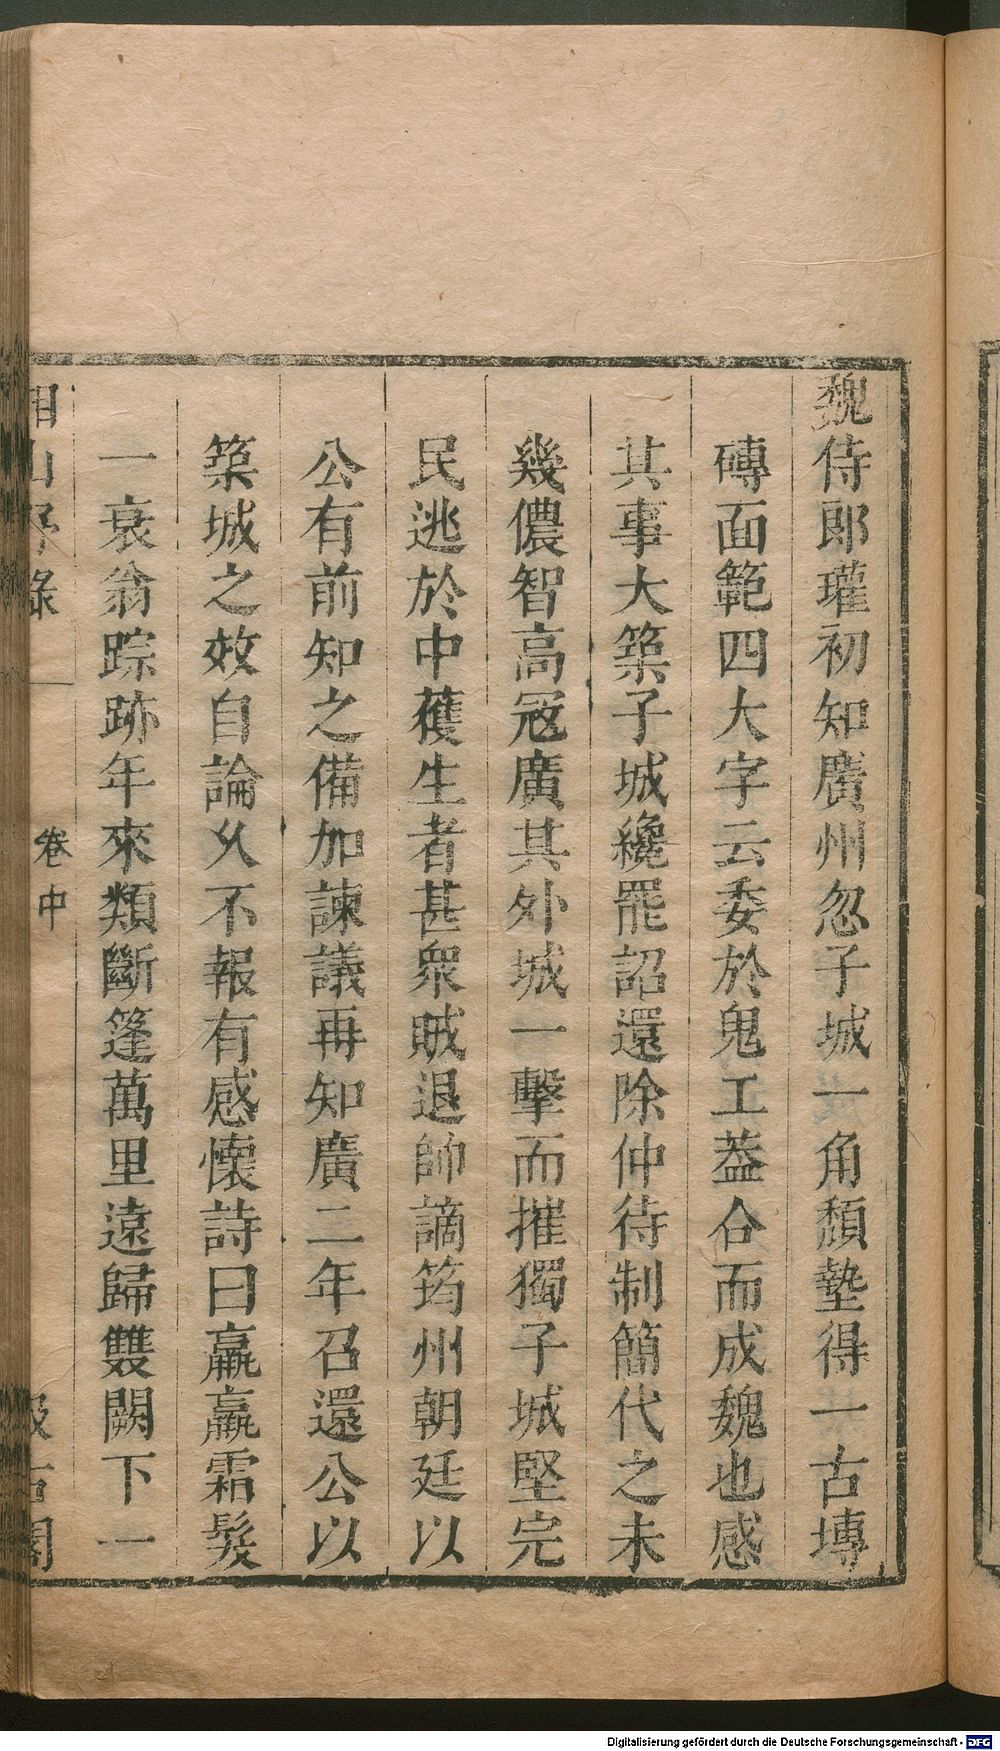 魏侍郎瓘初知廣州忽子城一角頹墊得一古塼
磚面範四大字云委於鬼工葢合而成魏也感
其事大築子城纔罷詔還除仲待制簡代之未
幾儂智高寇廣其外城一擊而摧獨子城堅完
民逃於中獲生者甚衆賊退帥謫筠州朝廷以
公有前知之備加諫議再知廣二年召還公以
築城之效自論乆不報有感懷詩曰羸羸霜髮
一衰翁踪跡年來類斷篷萬里遠歸雙闕下一
湘山野錄 卷中 汲古閣
Digitalisierung gefördert durch die Deutsche Forschungsgemeinschaft - DFG